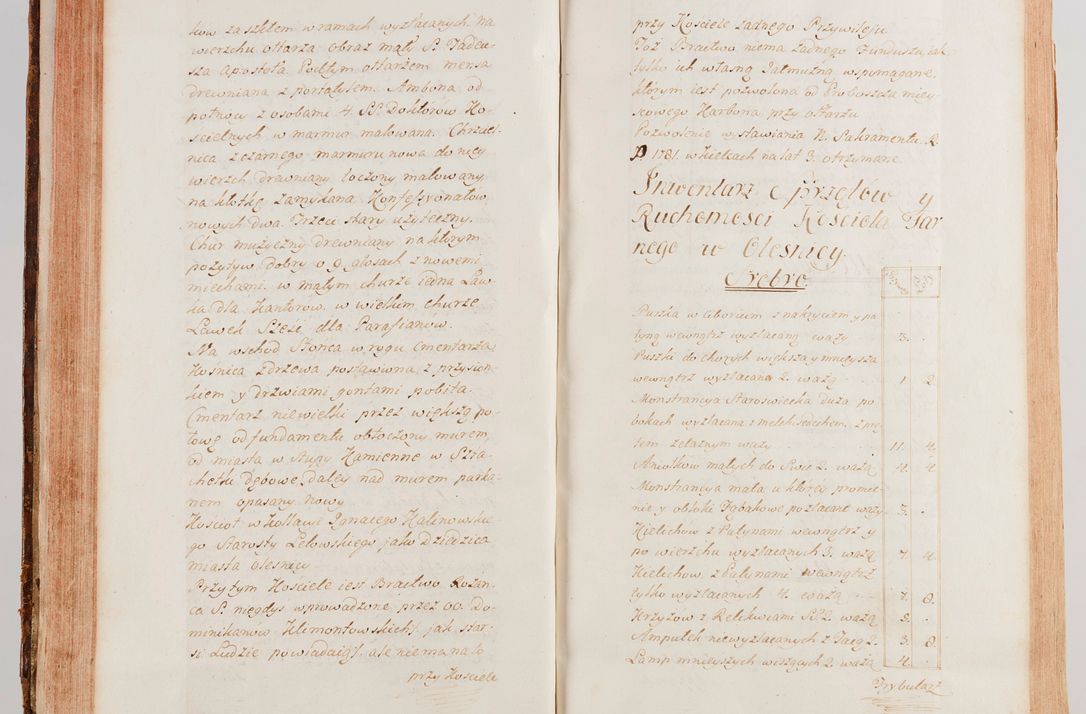 ków za szkłem w ramach wyzłacanych. Na
wierzchu ołtarza obraz mały S. Tadeu-
sza Apostoła. Pod tym ołtarzem mensa
drewniana z portatylem. Ambona od
połnocy z osobami 4. SS. Doktorów Ko-
scielnych w marmur malowana. Chrzciel-
nica z czarnego marmuru nowa do niey
wierzch drewniany toczony malowany
na kłotkę zamykana. Konfessyonałow
nowych dwa. Trzeci stary użyteczny.
Chur muzyczny drewniany na ktorym
pozytyw dobry o 9. głosach z nowemi
miechami. w małym churze iedna Ław-
ka dla Kantorow. w wielkim churze
Ławek Sześć dla Parafianow.
Na wschod Słonca w rogu Cmentarza
Kosnica z drzewa postawiona, z przysion-
kiem y drzwiami gontami pobita.
Cmentarz niewielki przez większą po-
łowę od fundamentu obtoczony murem,
od miasta w słupy Kamienne w Szta-
chetki dębowe, daley nad murem parka-
nem opasany nowy
Kościoł w Kollacyi Ignacego Kalinowskie-
go Starosty Lelowskiego jako Dziedzica
miasta olesnicy.
Przy tym Kosciele iest Bractwo Rożan-
ca S. niegdys wprowadzone przez OO. Do-
minikanow Klimontowskich, jak star-
si Ludzie powiadaią, ale niema na to
przy Kosciele
przy Kosciele żadnego Przywileju.
Toż Bractwo niema żadnego Funduszu, iak
tylko ich własną Jałmużną wspomagane,
ktorym iest pozwolona od Proboszcza miey-
scowego Karbona przy ołtarzu
Pozwolenie wystawiania N. Sakramentu R.
P. 1781. w Kielcach na lat 3. otrzymane
Inwentarz Sprzętow y
Ruchomosci Kościoła Far
nego w Olesnicy.
Srebro.
Puszka w Ciborium z nakryciem, y pa
tyną wewnątrz wyzłacaną waży 3. .
Puszki do Chorych większa y mnieysza
wewnątrz wyzłacana 2. ważą 1. 2.
Monstrancya Staroswiecka duża po
bokach wyzłacana z melchisedechem, z mę
lem żelaznym waży 11. 4.
Aniołkow małych do Swic 2. ważą 4. 4.
Monstrancya mała u ktorey promie-
nie, y obłoki Tębakowe pozłacane waży 3. .
Kielichow z Patynami wewnątrz y
po wierzchu wyzłacanych 3. ważą 7. 4.
Kielichow z Patynami wewnątrz
tylko wyzłacanych 4. ważą 7. 8.
Krzyżow z Relikwiami SS. 2. ważą 5. .
Ampułek niewyzłacanych z Tacą 2. 3. 8.
Lamp mnieyszych wiszących 2. ważą 4. .
Trybularz